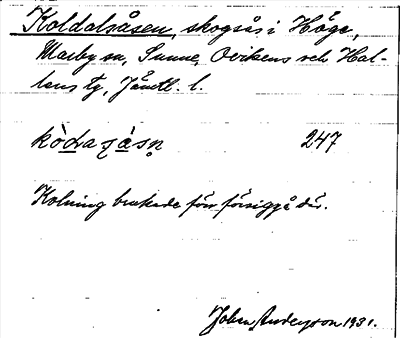 Koldalsåsen, skogsås i Höge,
Marby sn, Sunne, Ovikens och Hal-
lens tg, Jämtl. l.
kòdaʒàsn̥ 247
Kolning brukade förr försiggå där.
Johan Anderson 1931.